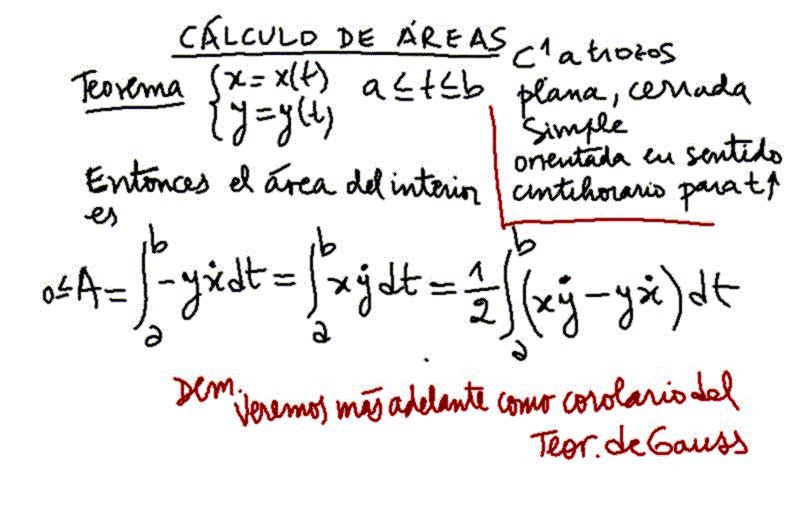 CÁLCULO DE ÁREAS
Teorema { x = x(t) y = y(t) a ≤ t ≤ b
C¹ a trozos
plana, cerrada
simple
orientada en sentido
antihorario para t↑
Entonces el área del interior
es
0≤ A = ∫_a^b -yẋdt = ∫_a^b xẏdt = 1/2 ∫_a^b (xẏ - yẋ) dt
Dem. Veremos más adelante como corolario del
Teor. de Gauss